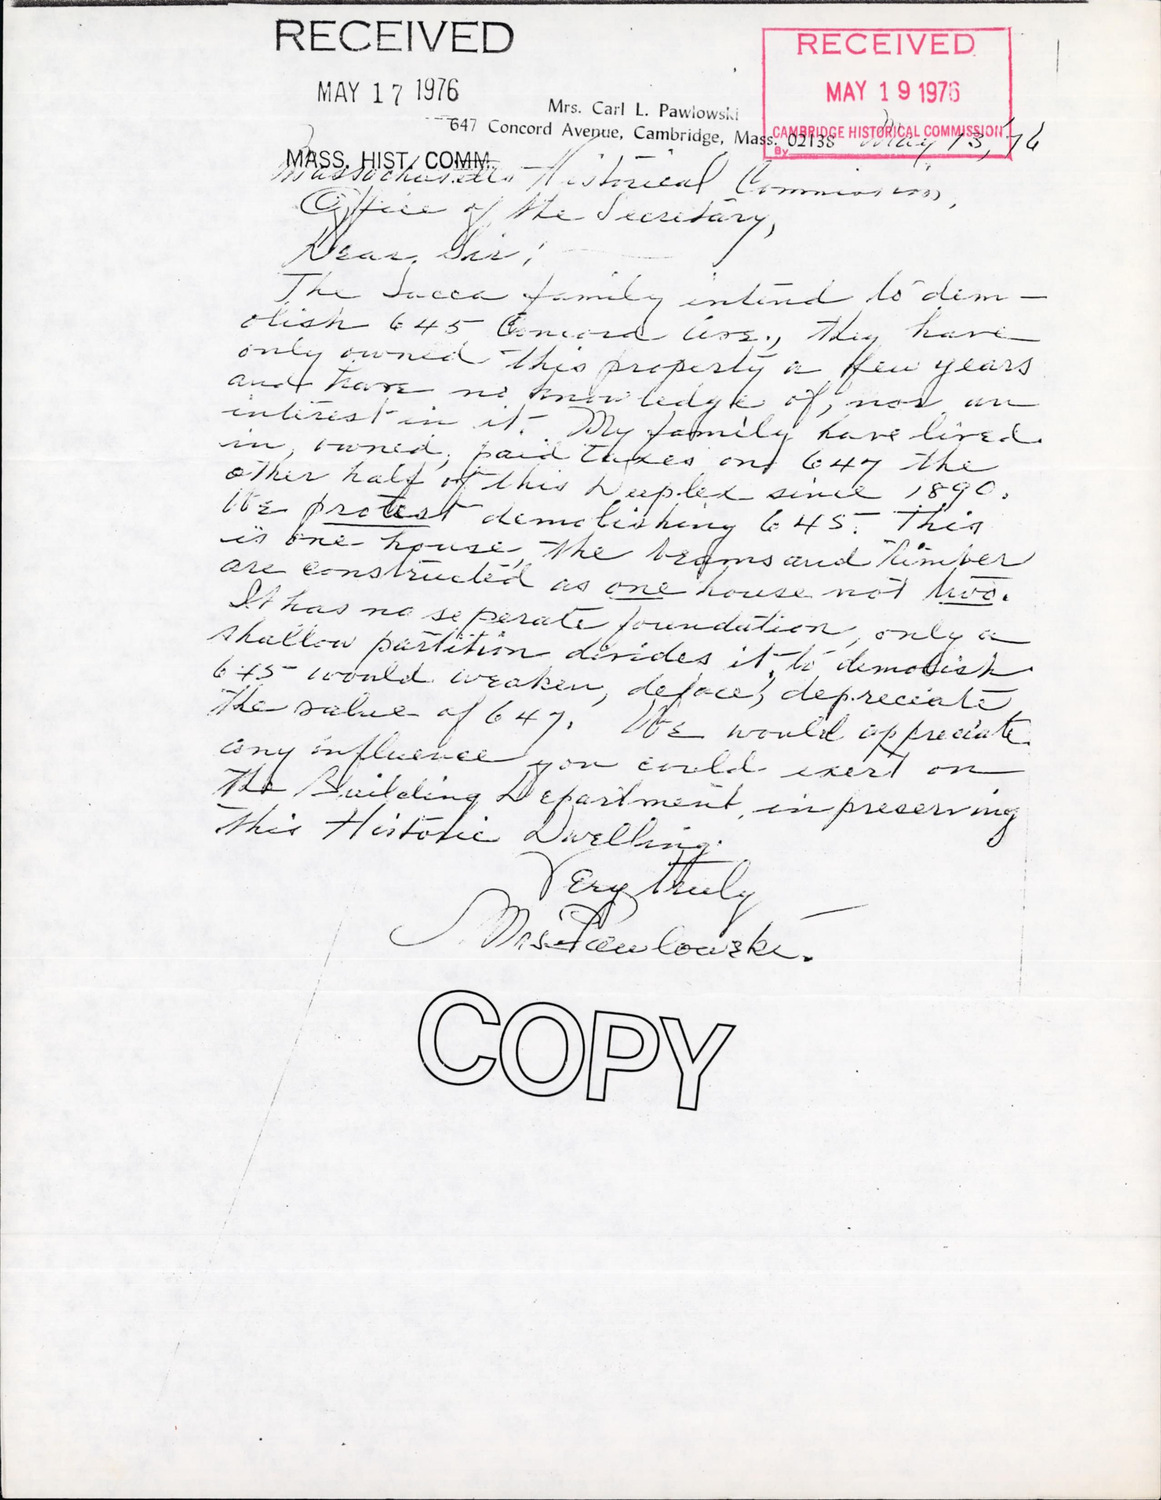 RECEIVED
MAY 17 1976
MASS. HIST. COMM.
RECEIVED
MAY 19 1976
CAMBRIDGE HISTORICAL COMMISSION
By
Mrs. Carl L. Pawlowski
647 Concord Avenue, Cambridge, Mass. 02138
May 13, '76
Massachusetts Historical Commission,
Office of the Secretary,
Dear Sir;
The Sacca family intend to dem-
olish 645 Concord Ave., they have
only owned this property a few years
and have no knowledge of, nor an
interest in it. My family have lived
in, owned, paid taxes on, 647 the
other half of this Duplex since 1890.
We protest demolishing 645. This
is one house, the beams and timber
are constructed as one house not two.
It has no seperate foundation, only a
shallow partition divides it, to demolish
645 would weaken, deface, depreciate
the value of 647. We would appreciate
any influence you could exert on
the Building Department, in preserving
this Historic Dwelling.
Very truly
Mrs. Pawlowski.
COPY